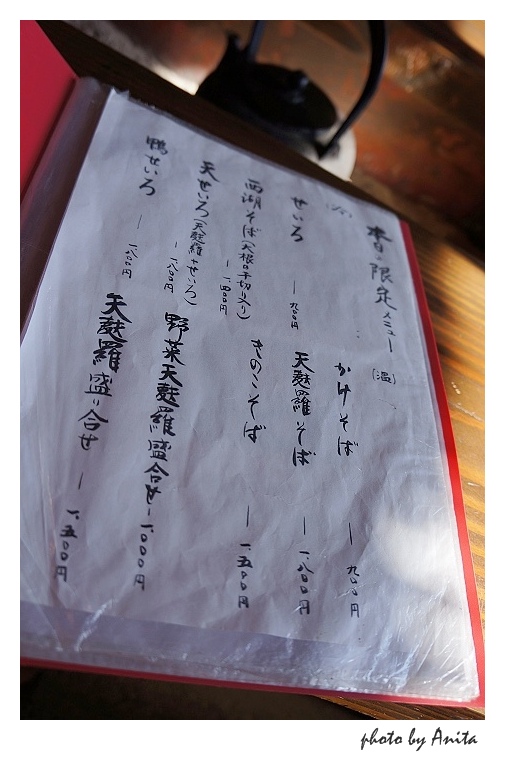 本日の限定メニュー
(冷)
せいろ 一 九〇〇円
西湖そば(大根の千切り入り) 一 一、四〇〇円
天せいろ(天麩羅+せいろ) 一 一、八〇〇円
鴨せいろ 一 一、八〇〇円
(温)
かけそば 一 九〇〇円
天麩羅そば 一 一、八〇〇円
きのこそば 一 一、五〇〇円
野菜天麩羅盛合せ 一 一、〇〇〇円
天麩羅盛り合せ 一 一、五〇〇円
photo by Anita